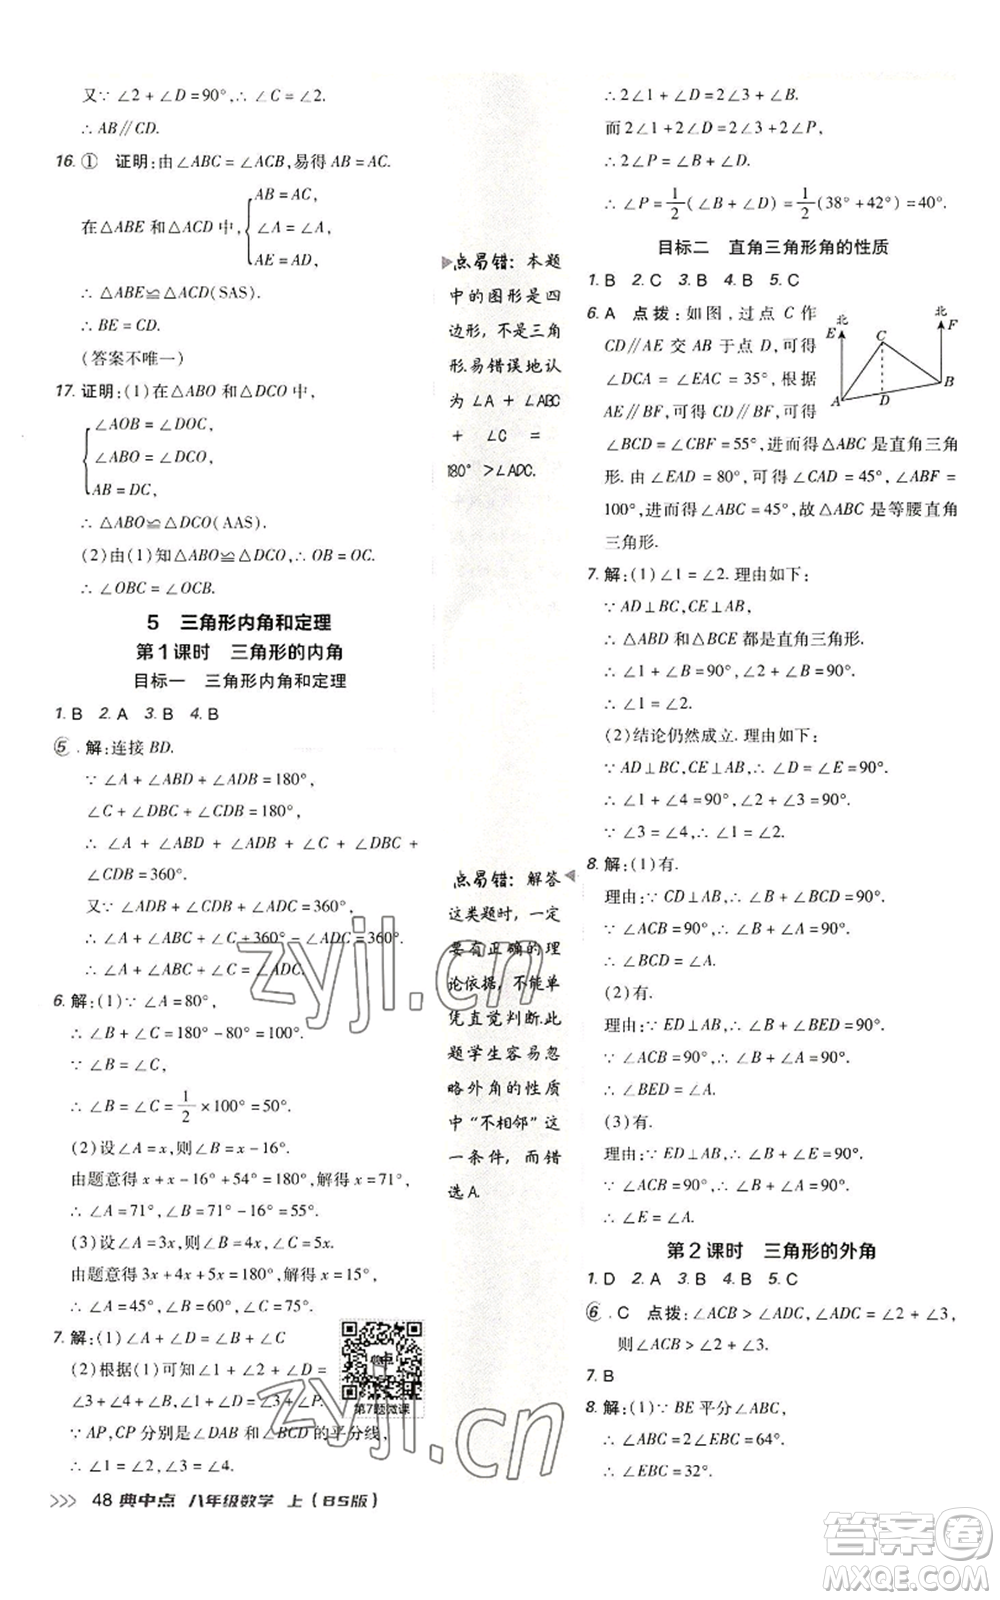 又∵ ∠2 + ∠D = 90°, ∴ ∠C = ∠2.
∴ AB∥CD.
16. ① 证明:由∠ABC = ∠ACB,易得 AB = AC.
在△ABE 和△ACD 中,
AB = AC,
∠A = ∠A,
AE = AD,
∴ △ABE≌△ACD(SAS).
∴ BE = CD.
(答案不唯一)
17. 证明:(1)在△ABO 和△DCO 中,
∠AOB = ∠DOC,
∠ABO = ∠DCO,
AB = DC,
∴ △ABO≌△DCO(AAS).
(2)由(1)知△ABO≌△DCO,∴ OB = OC.
∴ ∠OBC = ∠OCB.
5 三角形内角和定理
第1课时 三角形的内角
目标一 三角形内角和定理
1. B 2. A 3. B 4. B
5. 解:连接 BD.
∵ ∠A + ∠ABD + ∠ADB = 180°,
∠C + ∠DBC + ∠CDB = 180°,
∴ ∠A + ∠ABD + ∠ADB + ∠C + ∠DBC +
∠CDB = 360°.
又∵ ∠ADB + ∠ADC + ∠CDB = 360°,
∴ ∠A + ∠ABC + ∠C + 360° - ∠ADC = 360°.
∴ ∠A + ∠ABC + ∠C = ∠ADC.
6. 解:(1)∵ ∠A = 80°,
∴ ∠B + ∠C = 180° - 80° = 100°.
∵ ∠B = ∠C,
∴ ∠B = ∠C = 1/2 × 100° = 50°.
(2)设∠A = x,则∠B = x - 16°.
由题意得 x + x - 16° + 54° = 180°,解得 x = 71°.
∴ ∠A = 71°,∠B = 71° - 16° = 55°.
(3)设∠A = 3x,则∠B = 4x,∠C = 5x.
由题意得 3x + 4x + 5x = 180°,解得 x = 15°.
∴ ∠A = 45°,∠B = 60°,∠C = 75°.
7. 解:(1)∠A + ∠D = ∠B + ∠C
(2)根据(1)可知∠1 + ∠D =
∠3 + ∠P,∠2 + ∠P = ∠4 + ∠B,
∴ ∠1 - ∠3 = ∠P - ∠D,
∠2 - ∠4 = ∠B - ∠P.
∵ AP,CP 分别是∠DAB 和∠BCD 的平分线,
∴ ∠1 = ∠2,∠3 = ∠4.
∴ ∠P - ∠D = ∠B - ∠P.
第7题微课
>>> 48 典中点 八年级数学 上(BS版)
点易错:本题
中的图形是四
边形,不是三角
形.易错误地认
为 ∠A + ∠ABC
+ ∠C =
180° > ∠ADC.
点易错:解答
这类题时,一定
要有正确的理
论依据,不能单
凭直觉判断.此
题学生容易忽
略外角的性质
中“不相邻”这
一条件,而错
选A.
∴ 2∠1 + ∠D = 2∠3 + ∠B.
而 2∠1 + 2∠D = 2∠3 + 2∠P,
∴ 2∠P = ∠B + ∠D.
∴ ∠P = 1/2(∠B + ∠D) = 1/2(38° + 42°) = 40°.
目标二 直角三角形角的性质
1. B 2. C 3. B 4. B 5. C
6. A 点拨:如图,过点 C 作
CD∥AE 交 AB 于点 D,可得
∠DCA = ∠EAC = 35°,根据
AE∥BF,可得 CD∥BF,可得
∠BCD = ∠CBF = 55°,进而得△ABC 是直角三角
形.由∠EAD = 80°,可得∠CAD = 45°,∠ABF =
100°,进而得∠ABC = 45°,故△ABC 是等腰直角
三角形.
北
E
C
北
F
A
D
B
7. 解:(1)∠1 = ∠2. 理由如下:
∵ AD⊥BC,CE⊥AB,
∴ △ABD 和△BCE 都是直角三角形.
∴ ∠1 + ∠B = 90°,∠2 + ∠B = 90°.
∴ ∠1 = ∠2.
(2)结论仍然成立. 理由如下:
∵ AD⊥BC,CE⊥AB,
∴ ∠D = ∠E = 90°.
∴ ∠1 + ∠4 = 90°,∠2 + ∠3 = 90°.
∵ ∠3 = ∠4,∴ ∠1 = ∠2.
8. 解:(1)有.
理由:∵ CD⊥AB,∴ ∠B + ∠BCD = 90°.
∵ ∠ACB = 90°,∴ ∠A + ∠B = 90°.
∴ ∠BCD = ∠A.
(2)有.
理由:∵ ED⊥AB,∴ ∠B + ∠BED = 90°.
∵ ∠ACB = 90°,∴ ∠A + ∠B = 90°.
∴ ∠BED = ∠A.
(3)有.
理由:∵ ED⊥AB,∴ ∠B + ∠E = 90°.
∵ ∠ACB = 90°,∴ ∠A + ∠B = 90°.
∴ ∠E = ∠A.
第2课时 三角形的外角
1. D 2. A 3. B 4. B 5. C
6. C 点拨:∠ACB > ∠ADC,∠ADC = ∠2 + ∠3,
则∠ACB > ∠2 + ∠3.
7. B
8. 解:(1)∵ BE 平分∠ABC,
∴ ∠ABC = 2∠EBC = 64°.
∴ ∠EBC = 32°.
zyjl.cn
zyjl.cn
答案圈
MXQE.COM